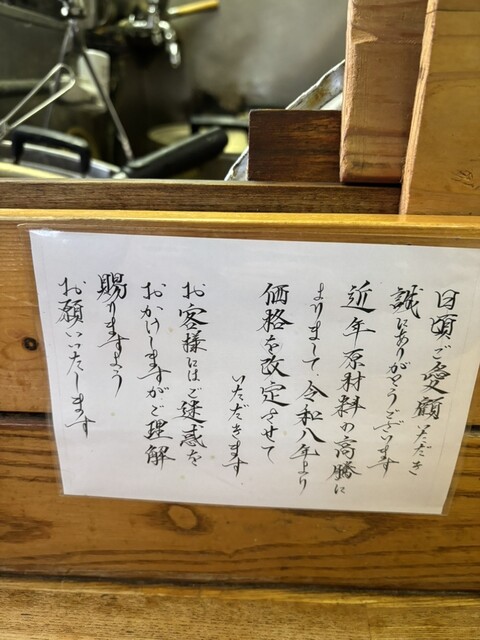 日頃ご愛顧いただき
誠にありがとうございます
近年原材料の高騰に
よりまして令和八年より
価格を改定させて
いただきます
お客様にはご迷惑を
おかけしますがご理解
賜りますよう
お願いいたします